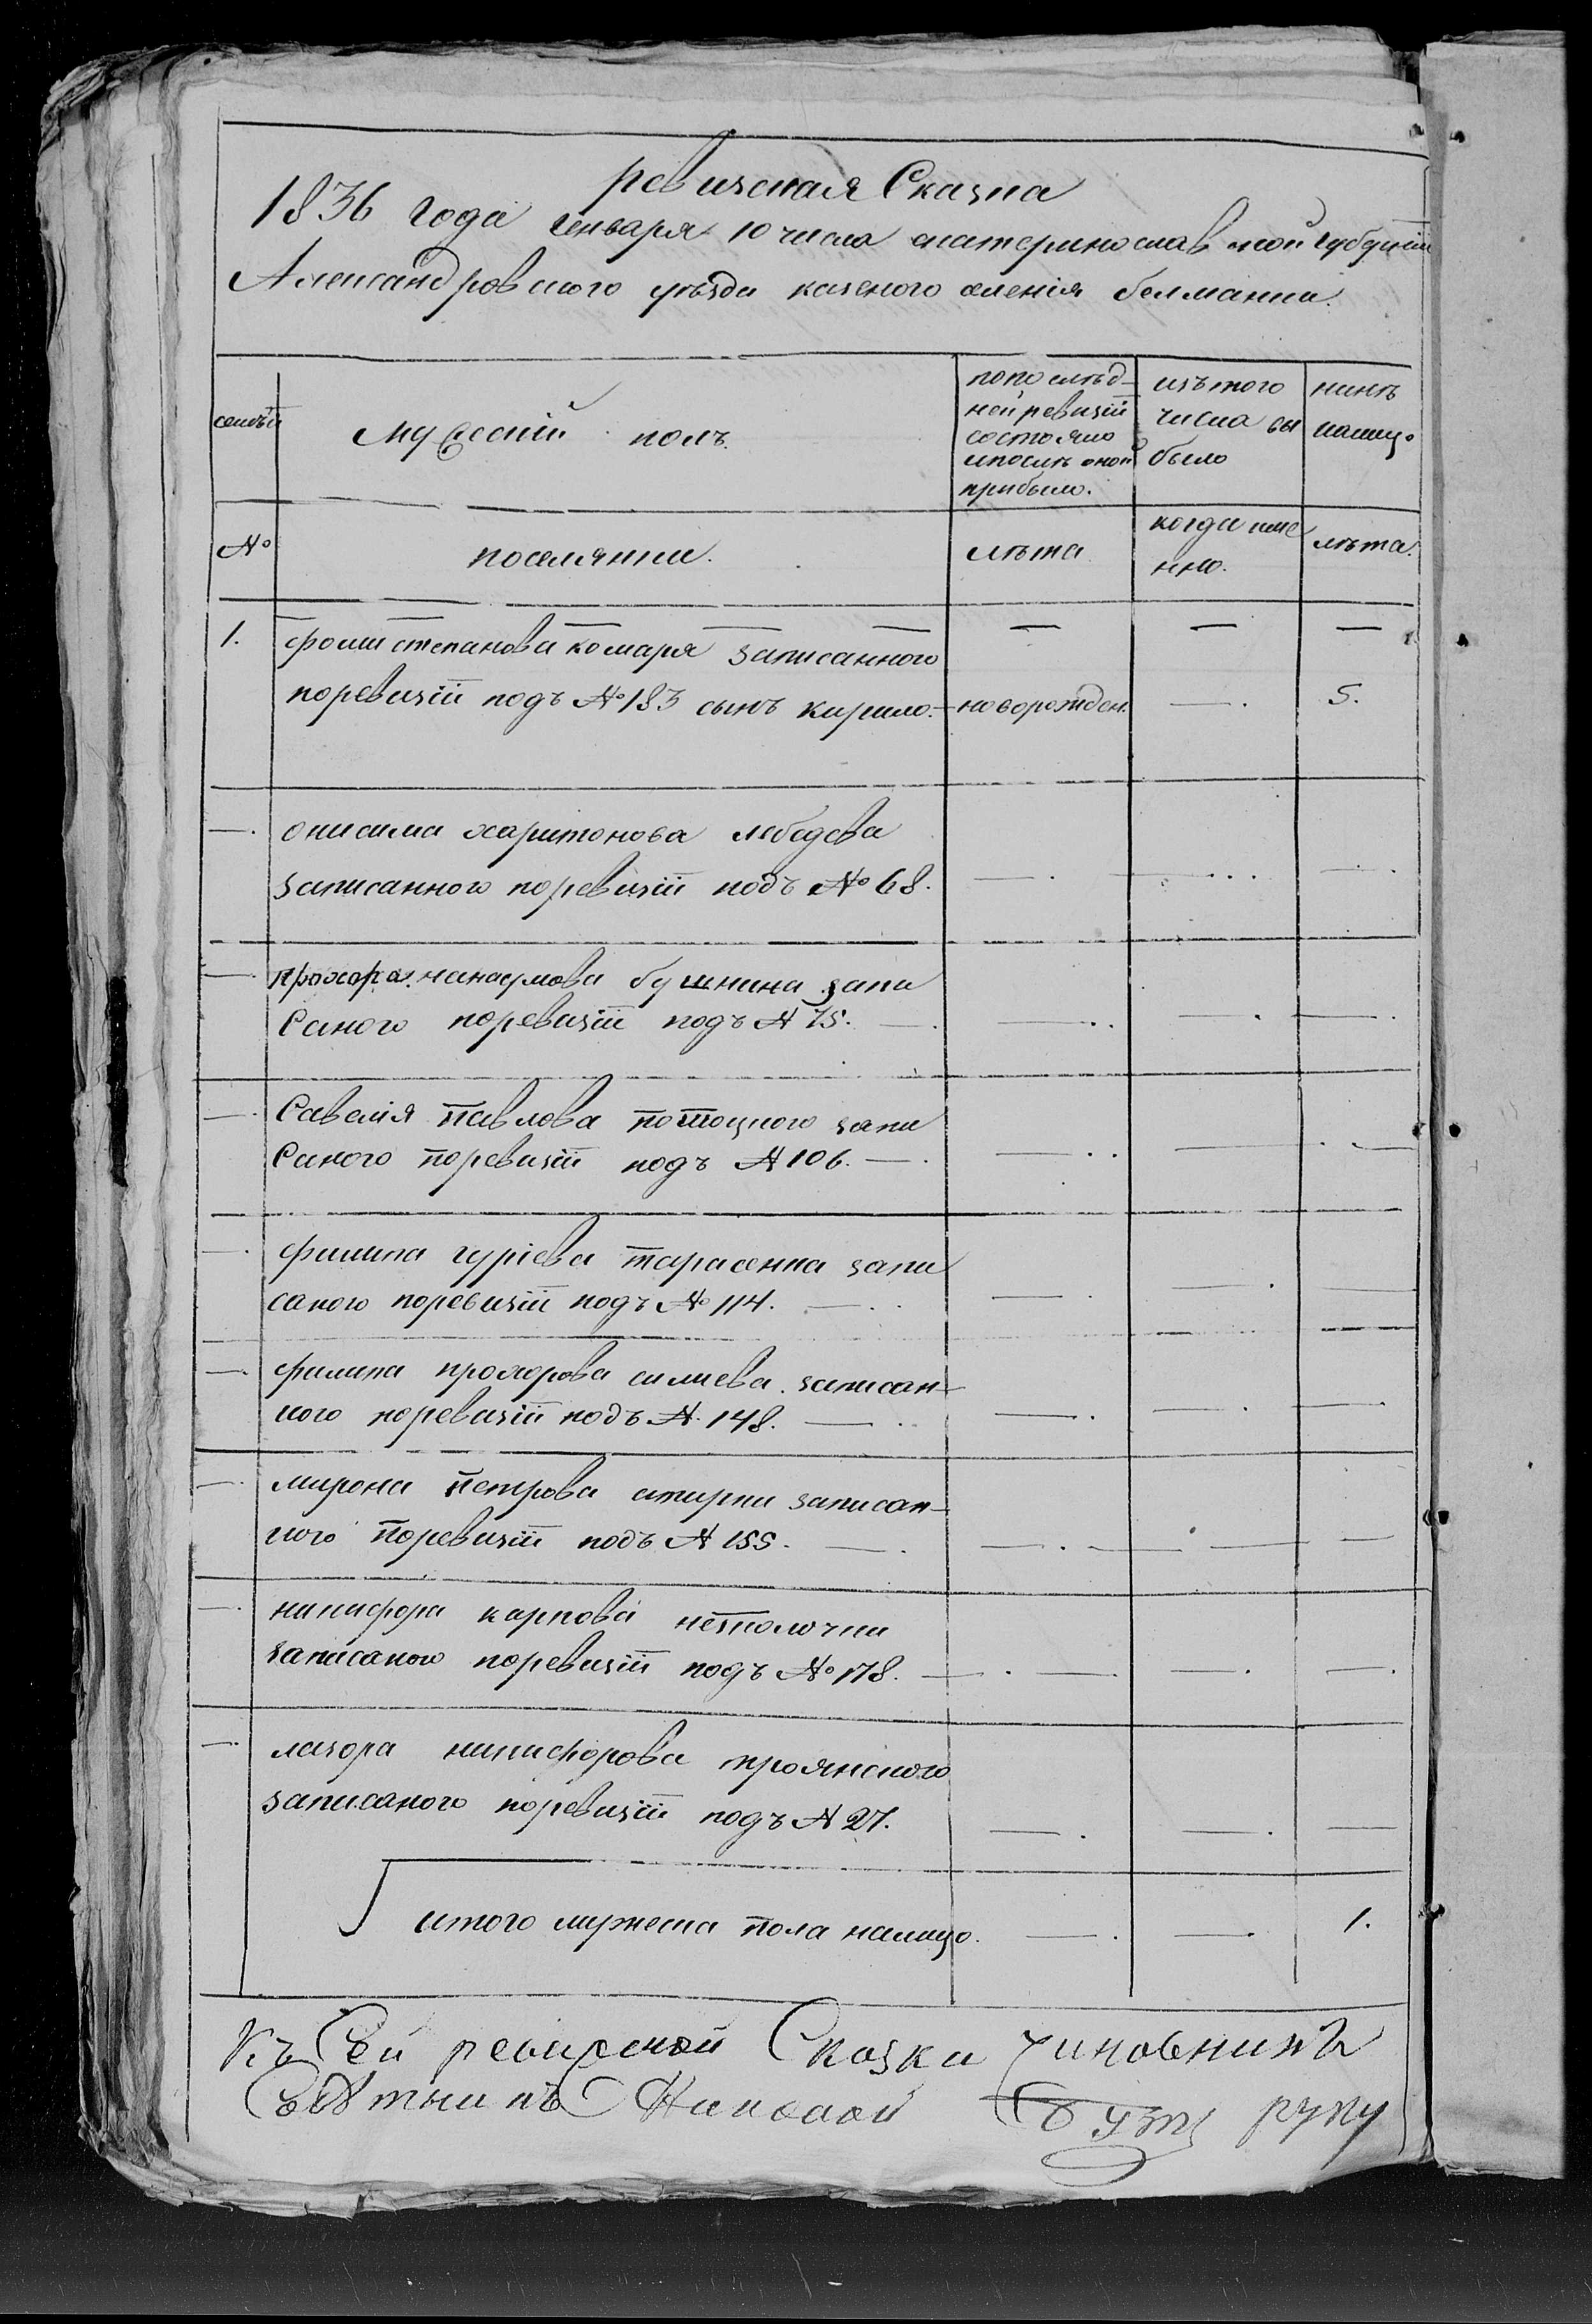 ревизская Сказка
1836 года генваря 10 числа екатеринославской губерніи
Александровского уѣзда казеного селенія белманки.
семьи
мужескій полъ
попослѣд-
ней ревизіи
состояло
ипослѣ оной
прибыло.
изътого
числа вы
было
нинѣ
налицо
№
поселянни.
лѣта
когда име
нно.
лѣта.
1. фоми степанова комаря записанного
поревизіи подъ №183 сынъ кирило. новорожден. 5.
онисима харитонова лебедева
записанного поревизіи подъ № 68.
прохора нанаумова бушнина запи
саного поревизіи подъ № 75.
Савелія павлова потоцкого запи
саного поревизіи подъ № 106.
филипа гуріева тарасенка запи
саного поревизіи подъ № 114.
филипа прохорова силиева записан-
ного поревизіи подъ № 148.
мирона петрова записан-
ного поревизіи подъ № 155.
никифора карпова
записаного поревизіи подъ № 178.
лазора никифорова троянского
записаного поревизіи подъ № 27.
итого мужеска пола налицо. 1.
Къ Сей ревизской Сказки чиновникъ
руку